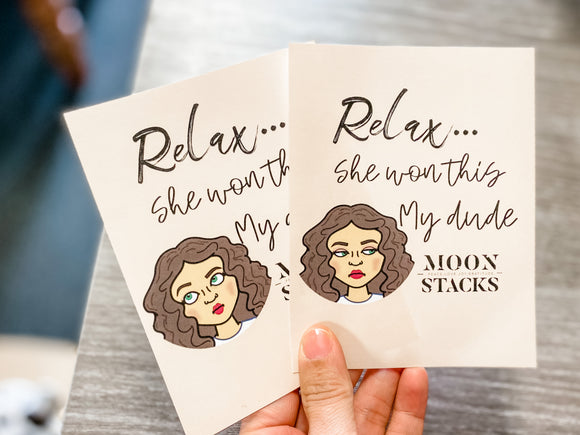 Relax...
She won th
My
Relax...
She won this
My dude
MOON
STACKS